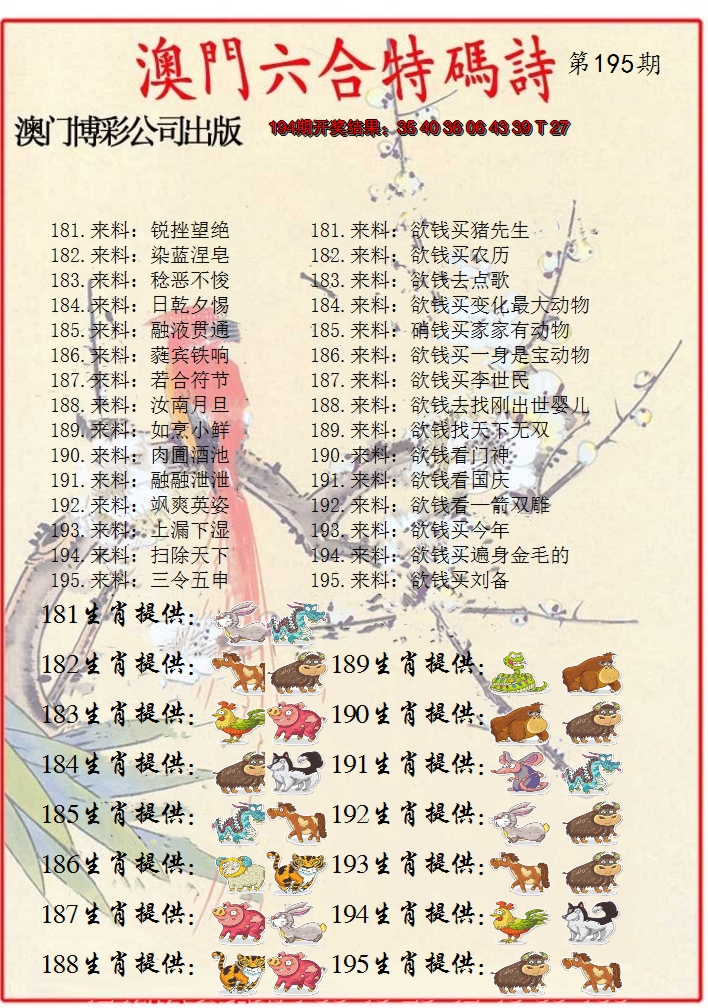 澳門六合特碼詩 第195期
澳门博彩公司出版 194期开奖结果：35 40 36 06 43 39 T 27
181.来料：锐挫望绝 181.来料：欲钱买猪先生
182.来料：染蓝涅皂 182.来料：欲钱买农历
183.来料：稔恶不悛 183.来料：欲钱去点歌
184.来料：日乾夕惕 184.来料：欲钱买变化最大动物
185.来料：融液贯通 185.来料：硝钱买家家有动物
186.来料：蕤宾铁响 186.来料：欲钱买一身是宝动物
187.来料：若合符节 187.来料：欲钱买李世民
188.来料：汝南月旦 188.来料：欲钱去找刚出世婴儿
189.来料：如烹小鲜 189.来料：欲钱找天下无双
190.来料：肉圃酒池 190.来料：欲钱看门神
191.来料：融融泄泄 191.来料：欲钱看国庆
192.来料：飒爽英姿 192.来料：欲钱看一箭双雕
193.来料：上漏下湿 193.来料：欲钱买今年
194.来料：扫除天下 194.来料：欲钱买遍身金毛的
195.来料：三令五申 195.来料：欲钱买刘备
181生肖提供：
182生肖提供： 189生肖提供：
183生肖提供： 190生肖提供：
184生肖提供： 191生肖提供：
185生肖提供： 192生肖提供：
186生肖提供： 193生肖提供：
187生肖提供： 194生肖提供：
188生肖提供： 195生肖提供：